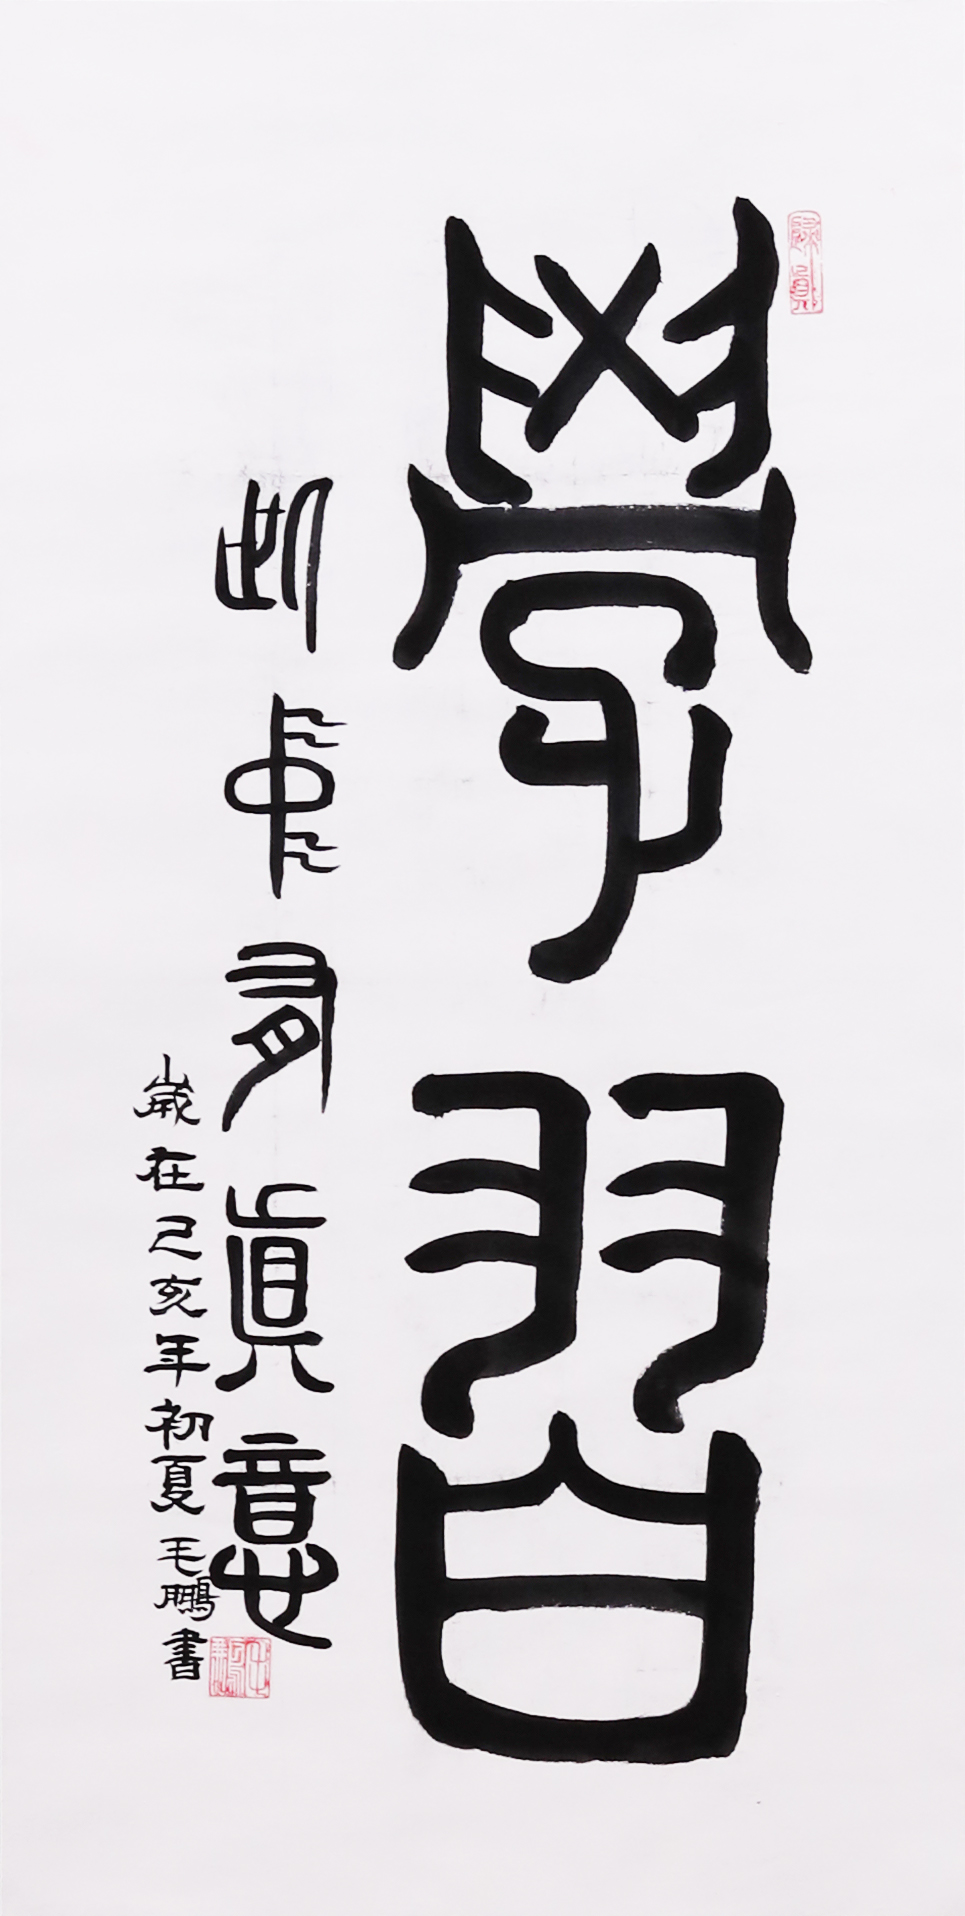 學習
此中有眞意
歲在己亥年初夏毛鵬書